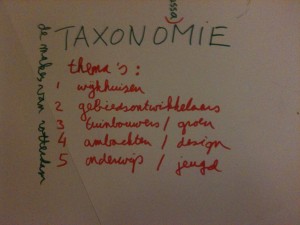 TAXONOMIE
thema's:
1 wijkhuisen
2 gebiedsontwikkelaars
3 tuinbouwers / groen
4 ambachten / design
5 onderwijs / jeugd
de makers van rotterdam